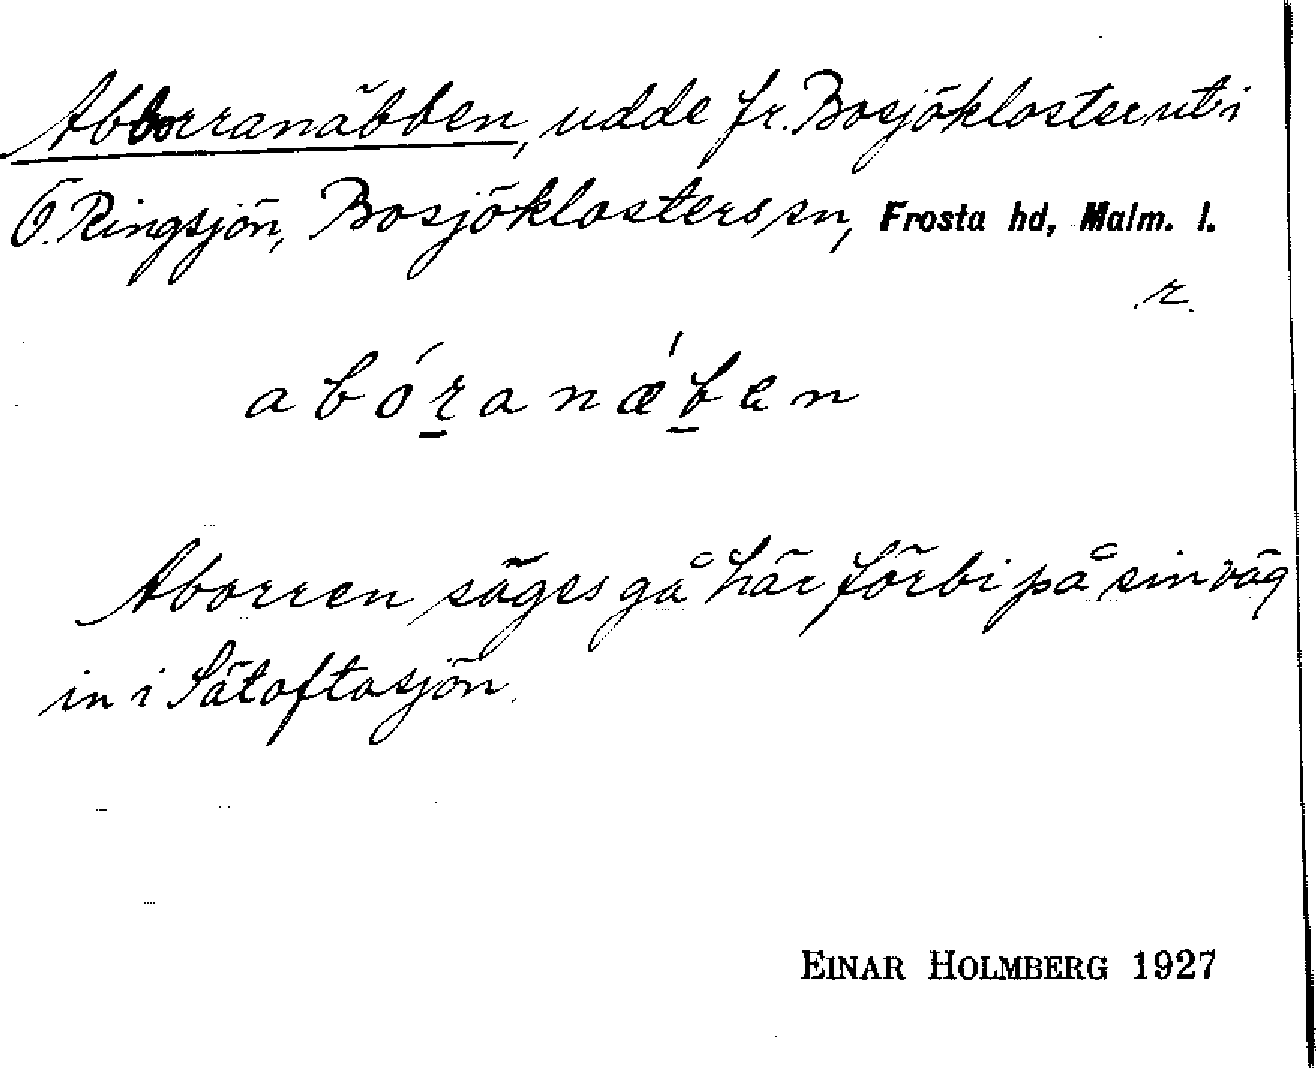 Abborranäbben, udde fr. Bosjökloster ut i
Ö. Ringsjön, Bosjöklosters sn, Frosta hd, Malm. l.
r.
abór̲anǽb̲en
Aborren säges gå här förbi på sin väg
in i Sätoftasjön.
EINAR HOLMBERG 1927